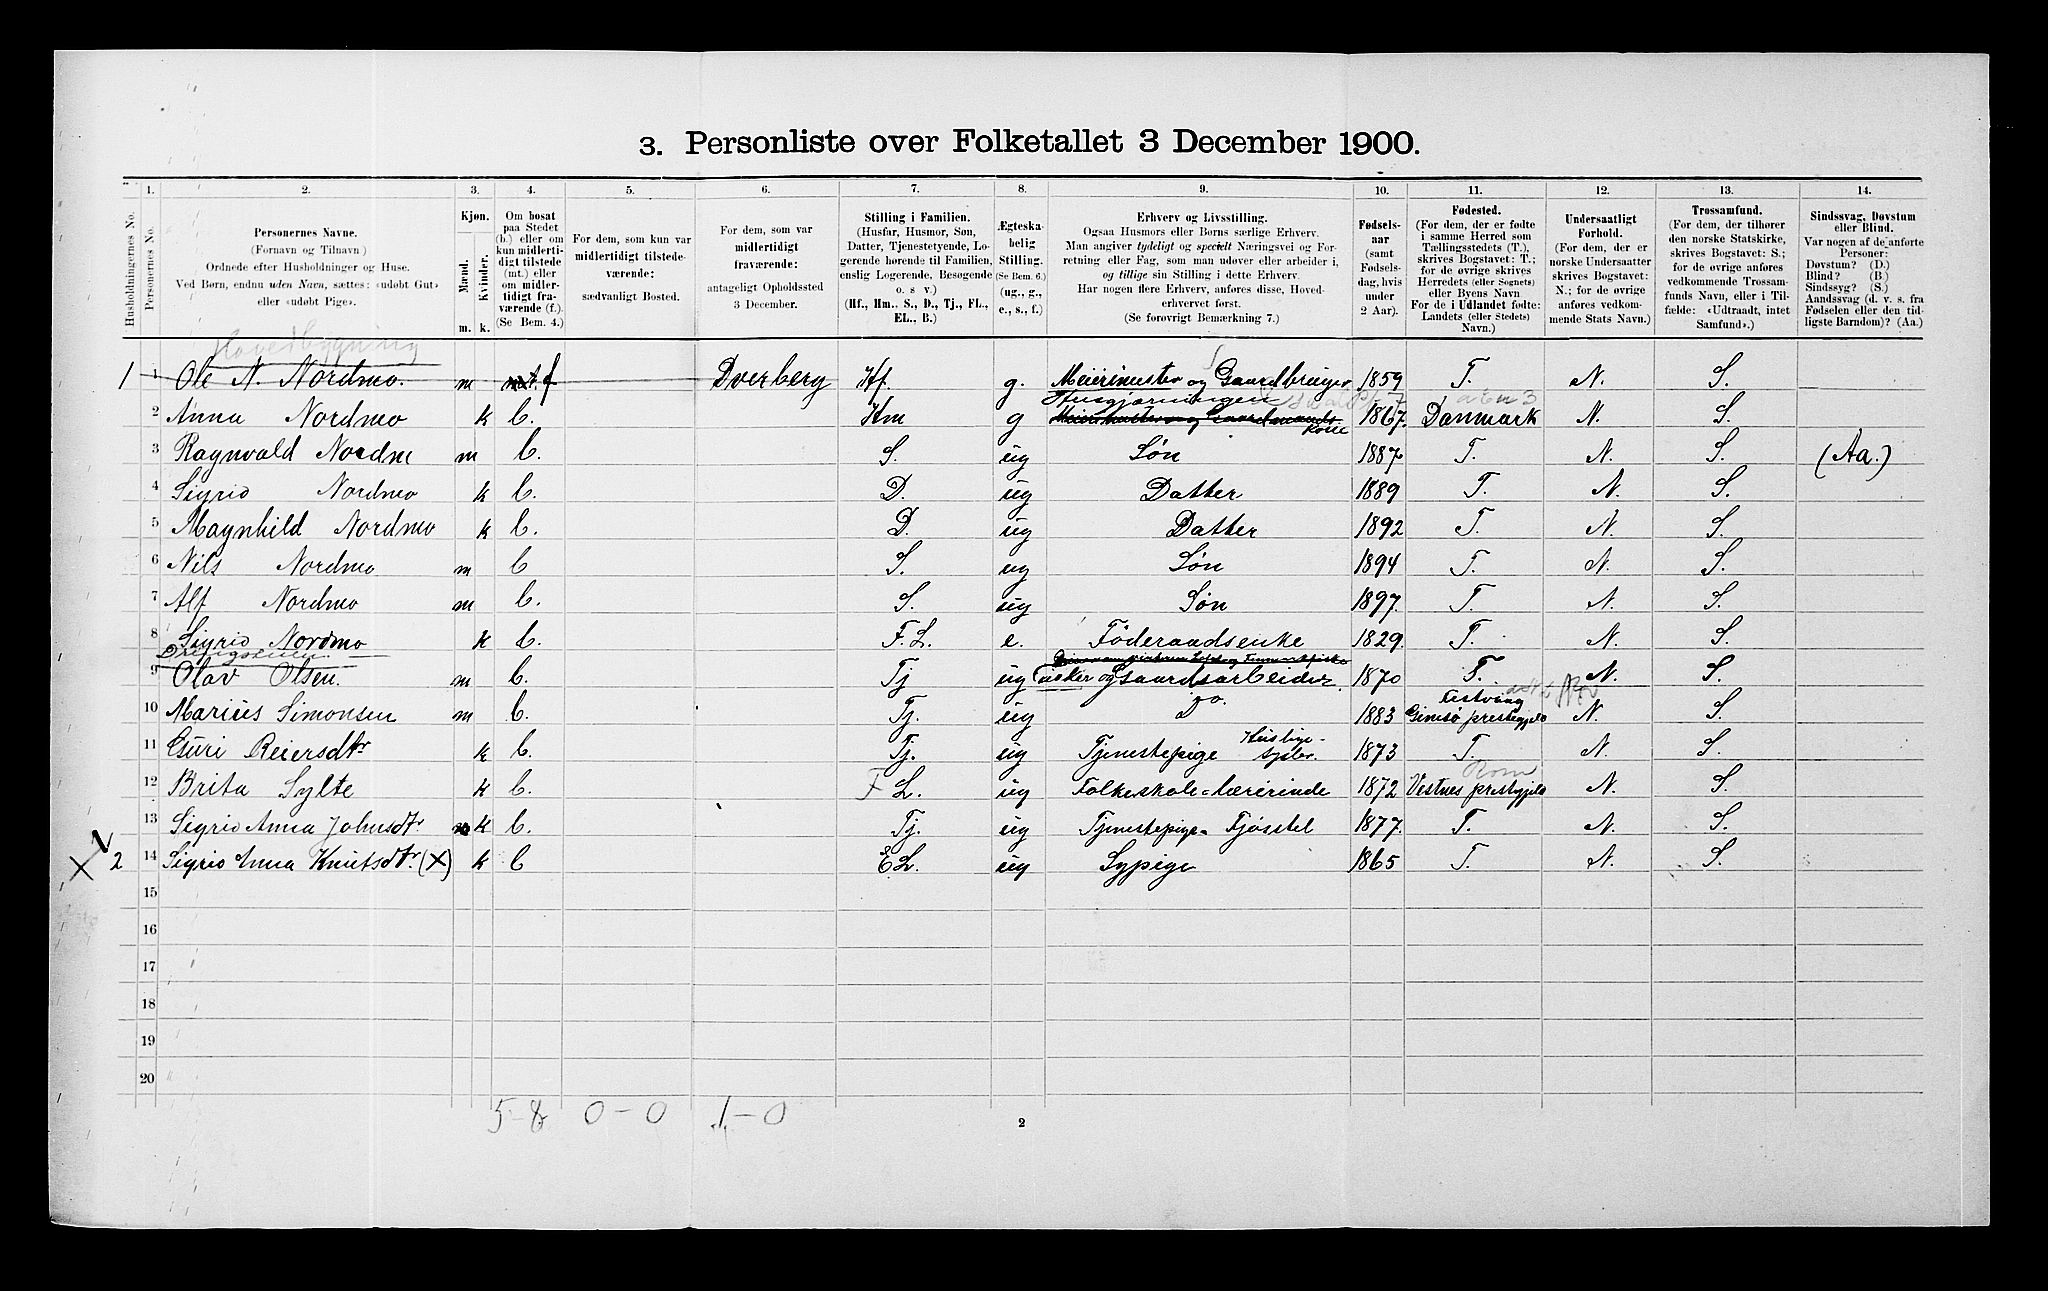 3. Personliste over Folketallet 3 December 1900.
Husholdningernes No.
1.
Personernes No.
2.
Personernes Navne.
(Fornavn og Tilnavn)
Ordnede efter Husholdninger og Huse.
Ved Børn, endnu uden Navn, sættes: «udøbt Gut»
eller «udøbt Pige».
3.
Kjøn.
Mænd.
Kvinder.
m. k.
4.
Om bosat
paa Stedet
(b.) eller om
kun midlerti-
digt tilstede
(mt.) eller
om midler-
tidigt fra-
værende (f.).
(Se Bem. 4.)
5.
For dem, som kun var
midlertidigt tilstede-
værende:
sædvanligt Bosted.
6.
For dem, som var
midlertidigt
fraværende:
antageligt Opholdssted
3 December.
7.
Stilling i Familien.
(Husfar, Husmor, Søn,
Datter, Tjenestetyende, Lo-
gerende hørende til Familien,
enslig Logerende, Besøgende
o. s v.)
(Hf., Hm., S., D., Tj., FL.,
EL., B.)
8.
Ægteska-
belig
Stilling.
(Se Bem. 6.)
(ug., g.,
e., s., f.)
9.
Erhverv og Livsstilling.
Ogsaa Husmors eller Børns særlige Erhverv.
Man angiver tydeligt og specielt Næringsvei og For-
retning eller Fag, som man udøver eller arbeider i,
og tillige sin Stilling i dette Erhverv.
Har nogen flere Erhverv, anføres disse, Hoved-
erhvervet først.
(Se forøvrigt Bemærkning 7.)
10.
Fødsels-
aar
(samt
Fødsels-
dag, hvis
under
2 Aar).
11.
Fødested.
(For dem, der er fødte
i samme Herred som
Tællingsstedets (T.),
skrives Bogstavet: T.;
for de øvrige skrives
Herredets (eller Sognets)
eller Byens Navn
For de i Udlandet fødte:
Landets (eller Stedets)
Navn.)
12.
Undersaatligt
Forhold.
(For dem, der er
norske Undersaatter
skrives Bogstavet:
N.; for de øvrige
anføres vedkom-
mende Stats Navn.)
13.
Trossamfund.
(For dem, der tilhører
den norske Statskirke,
skrives Bogstavet: S.;
for de øvrige anføres
vedkommende Trossam-
funds Navn, eller i Til-
fælde: «Udtraadt, intet
Samfund».)
14.
Sindssvag, Døvstum
eller Blind.
Var nogen af de anførte
Personer:
Døvstum? (D.)
Blind? (B.)
Sindssyg? (S.)
Aandssvag (d. v. s. fra
Fødselen eller den tid-
ligste Barndom)? (Aa.)
Hovedbygning
1 1 Ole N. Nordmo. m mt. f Dverberg Hf. g. Meierimester og Gaardbruger 1859 T. N. S.
Husgjerningen
2 Anna Nordmo k b. Hm g Meierimester og Gaardmands Kone 1867. Danmark N. S.
3 Ragnvald Nordm m b. S. ug Søn 1887 T. N. S. (Aa.)
4 Sigrid Nordmo k b. D. ug Datter 1889 T. N. S.
5 Magnhild Nordmo k b. D. ug Datter 1892 T. N. S.
6 Nils Nordmo m b S. ug Søn 1894 T. N. S.
7 Alf Nordmo m b. S. ug Søn 1897. T. N. S.
8 Sigrid Nordmo k b. F. L. e. Föderaadsenke 1829. T. N. S.
Drengstuen
9 Olav Olsen. m b. Tj ug og Gaardsarbeider. 1870 T. N. S.
10 Marius Simonsen m b. Tj. ug Do. 1883 Gimsö prestegjeld N. S.
11 Guri Reiersdtr k b. Tj. ug Tjenestepige Huslige sysler. 1873 T. N. S.
12 Brita Sylte k b. F L. ug Folkeskole-lærerinde 1872 Vestnes prestgjeld N. S.
13 Sigrid Anna Johnsdtr m k b. Tj. ug Tjenestepige - Fjösstel 1877. T. N. S.
X 2 14 Sigrid Anna Knutsdtr. (X) k b E L. ug Sypige 1865 T. N. S.
15
16
17
18
19
20
5-8 0-0 1-0
2